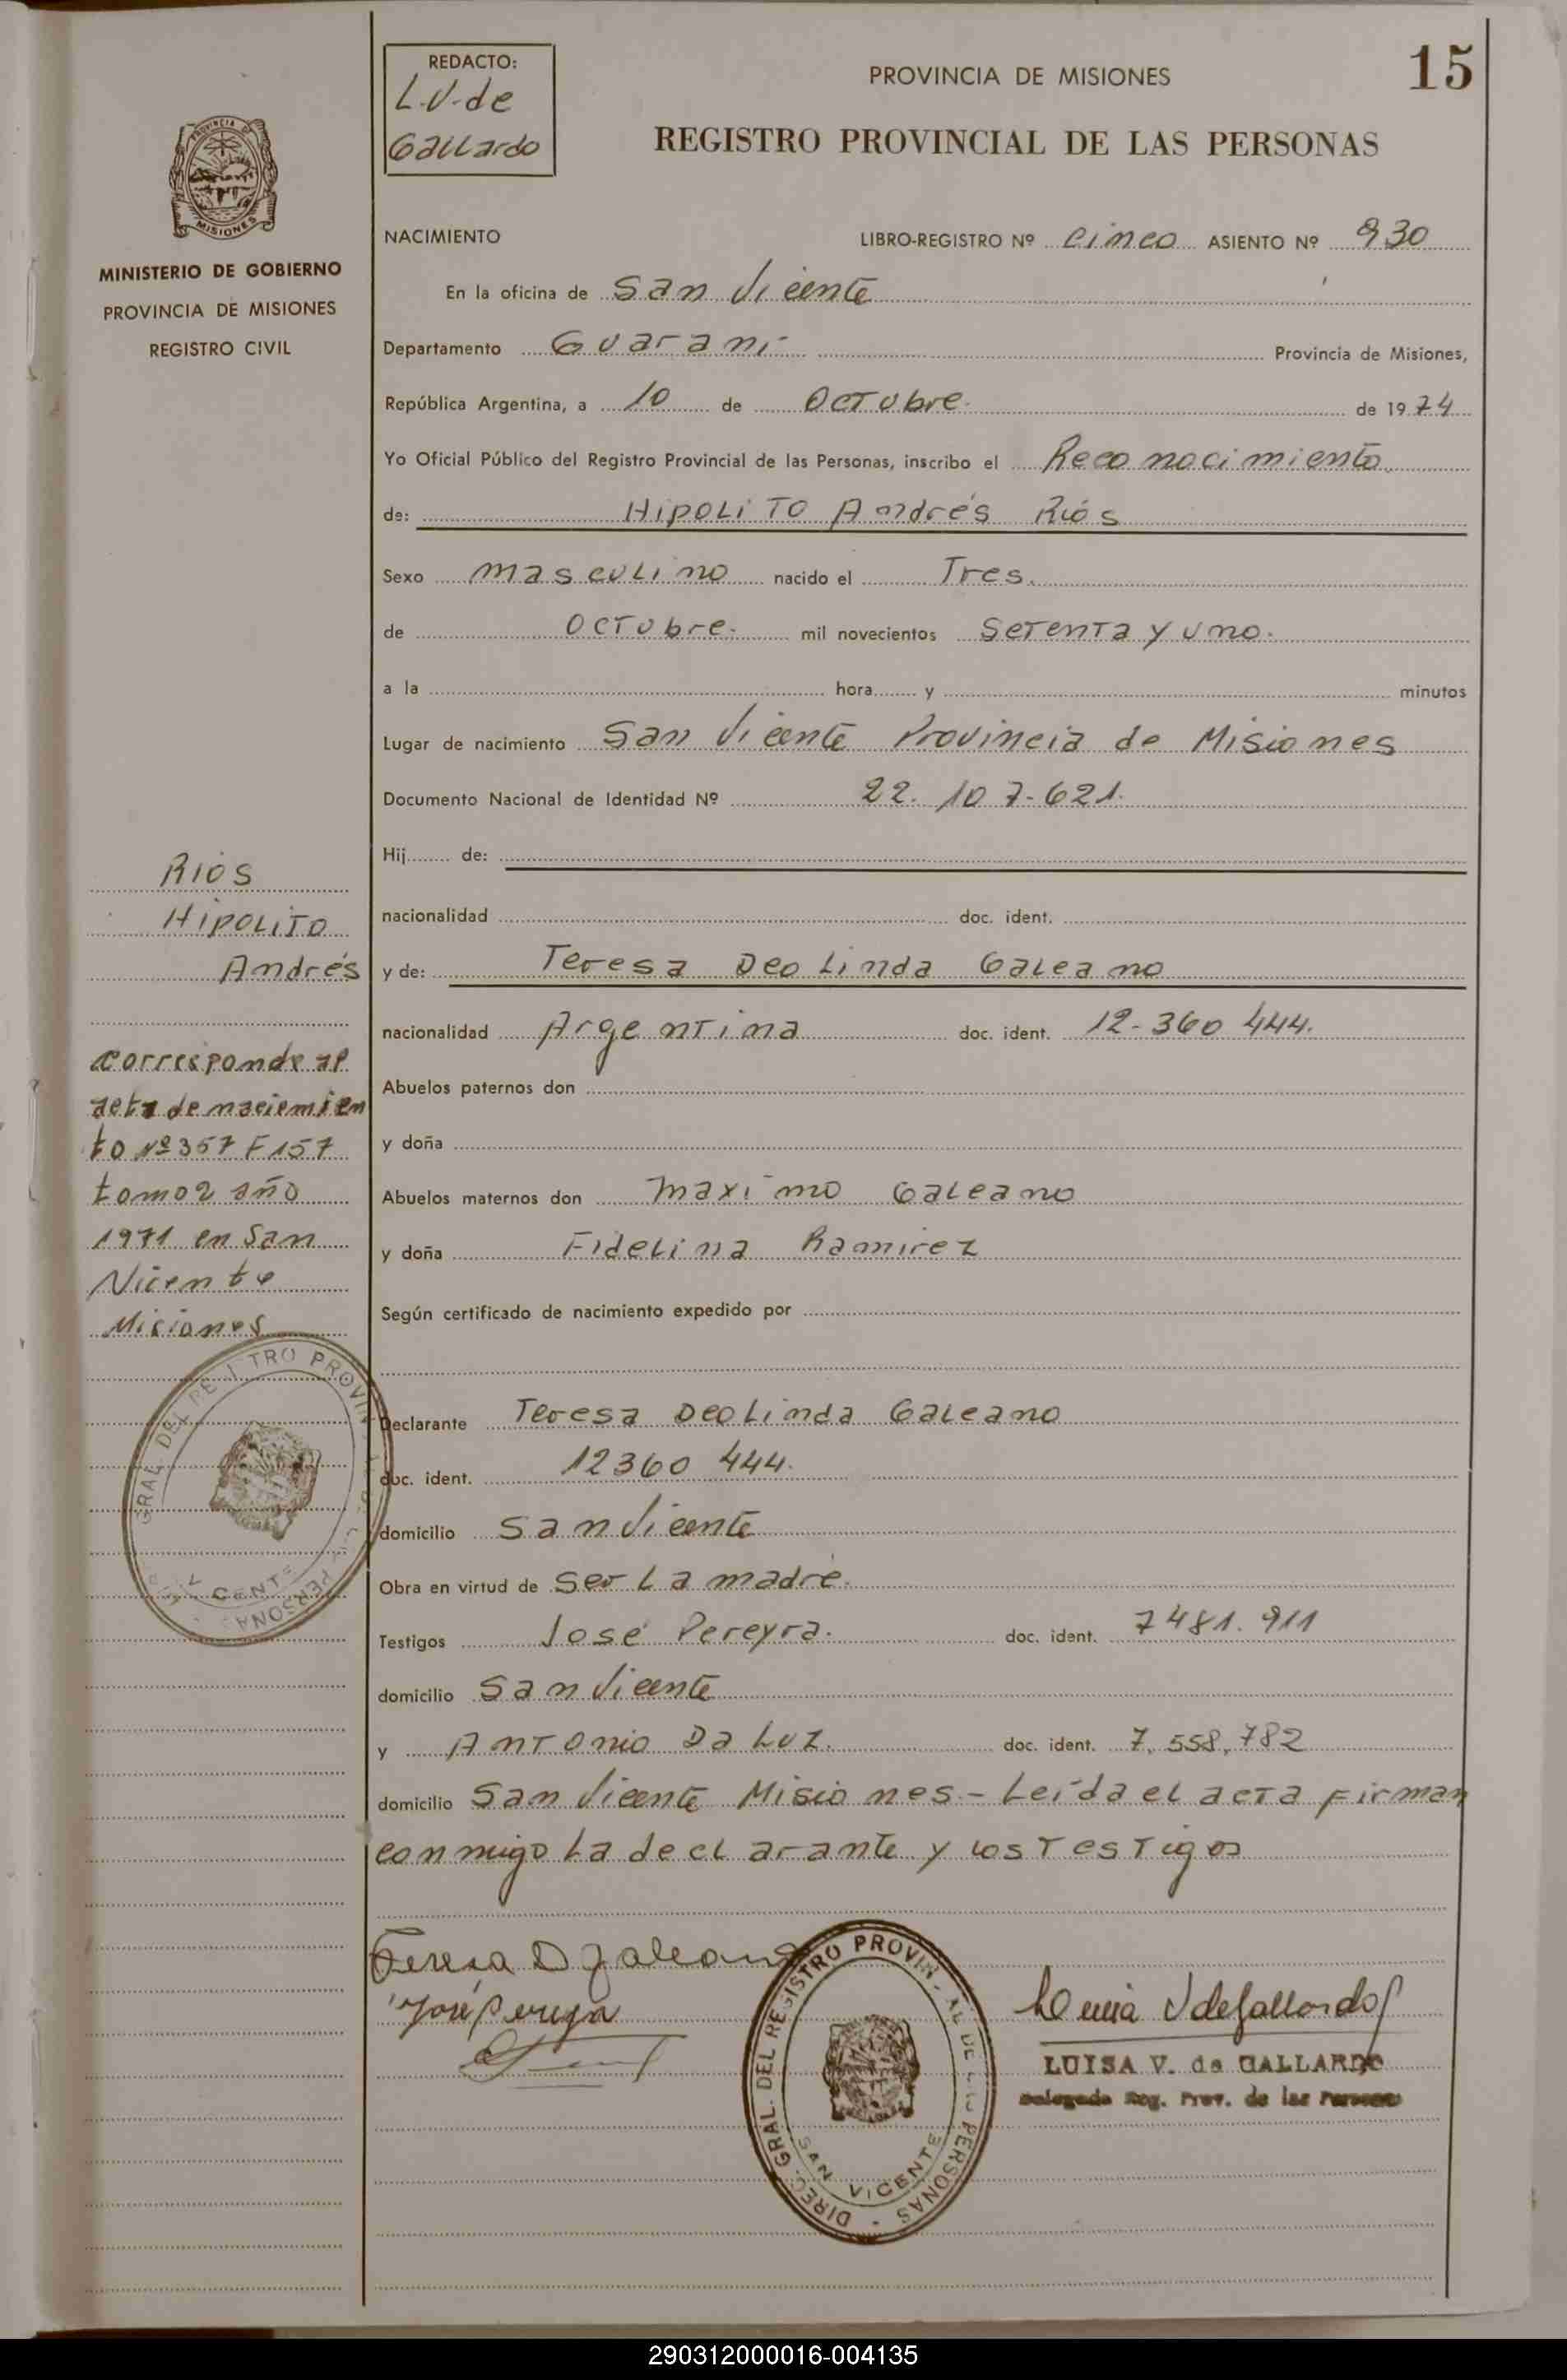 REDACTO:
L.V. de
Gallardo
PROVINCIA DE MISIONES
15
REGISTRO PROVINCIAL DE LAS PERSONAS
MISIONES
MINISTERIO DE GOBIERNO
PROVINCIA DE MISIONES
REGISTRO CIVIL
NACIMIENTO LIBRO-REGISTRO Nº cinco ASIENTO Nº 930
En la oficina de San Vicente
Departamento Guaraní Provincia de Misiones,
República Argentina, a 10 de Octubre de 1974
Yo Oficial Público del Registro Provincial de las Personas, inscribo el Reconocimiento
de: Hipolito Andrés Ríos
Sexo masculino nacido el Tres.
de Octubre mil novecientos Setenta y uno.
a la hora y minutos
Lugar de nacimiento San Vicente Provincia de Misiones
Documento Nacional de Identidad Nº 22.107.621.
Hij de:
nacionalidad doc. ident.
y de: Teresa Deolinda Galeano
nacionalidad Argentina doc. ident. 12.360 444.
Abuelos paternos don
y doña
Abuelos maternos don Maximo Galeano
y doña Fidelina Ramirez
Según certificado de nacimiento expedido por
Declarante Teresa Deolinda Galeano
doc. ident. 12360 444.
domicilio San Vicente
Obra en virtud de Ser la madre.
Testigos José Pereyra. doc. ident. 7481.911
domicilio San Vicente
y Antonio Da Luz. doc. ident. 7.558.782
domicilio San Vicente Misiones - Leída el acta firman
conmigo la declarante y los testigos
Ríos
Hipolito
Andrés
corresponde al
acta de naciemien
to Nº 357 F 157
tomo 2 año
1971 en San
Vicente
Misiones
Teresa D Galeano
José Pereyra
DIREC. GRAL. DEL REGISTRO PROVIN AL DE PERSONAS
SAN VICENTE
Luisa V de Gallardo
LUISA V. de GALLARDO
Delegada Reg. Prov. de las Personas
290312000016-004135